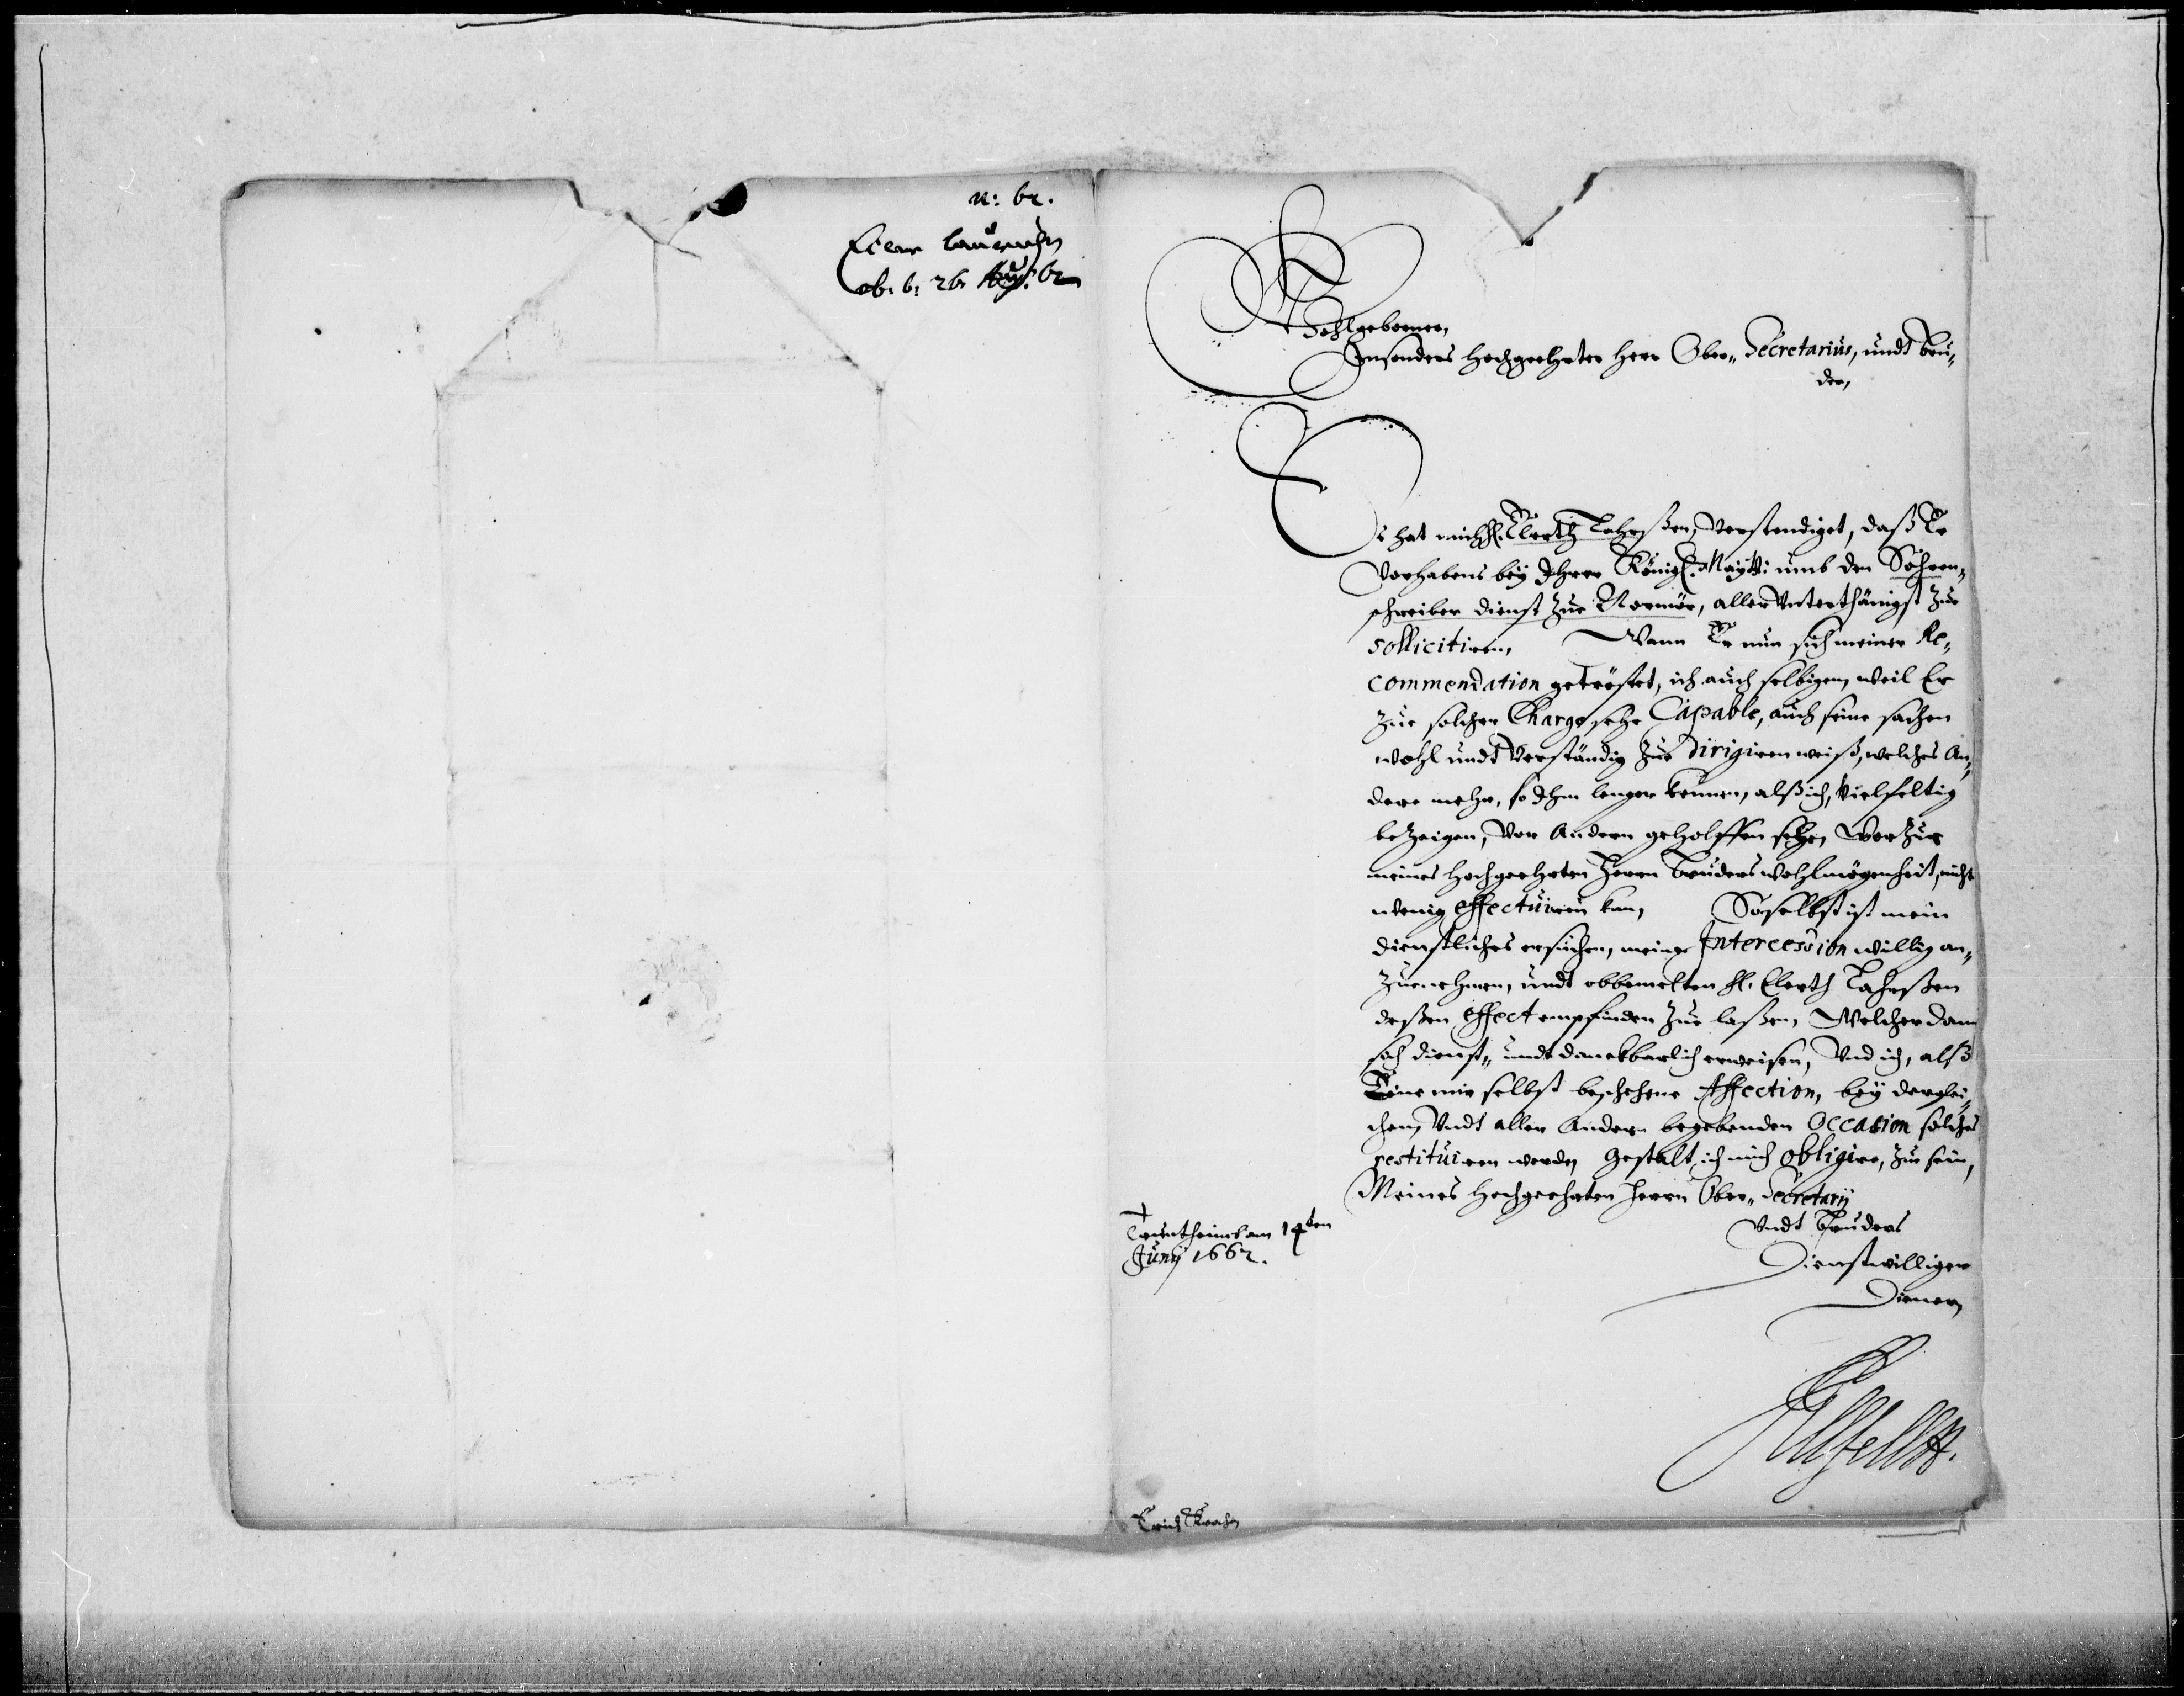 n: 62.
ob: b: 26 Aug: 62
Wohlgeborner,
Insonders hochgeehrter Herr Ober„ Secretarius, undt bru„
der,
Es hat mich H. Elerth Lahrßen, verstendiget, daß Er
Vorhabens bey Ihrer Königl. Maytt: umb den Sohren„
schreiber dienst zur Normör, aller Unterthänigst zur
sollicitiren, Wann Er nun sich meiner Re„
commendation getröstet, ich auch selbigen, weil Er
zur solcher Charge sehr Capable, auch seine sachen
wohl undt Verständig zur dirigiren weiß, welches An„
dere mehr, so Ihm lenger kennen, alß ich, vielfeltig
bezeigen, vor Andern geholffen sehe, Worzur
meines hochgeehrten Herrn bruders wohlmögenheit, nicht
wenig effectuiren kan, So selbst ist mein
dienstliches ersuchen, meine Intercession willig an„
zurnehmen, undt obbemelten H. Elerth Lahrßen
deßen effect empfinden zur laßen, Welcher dann
sich dienst„ undt danckbarlich erweisen, Und ich, alß
Eine mir selbst beschehene Affection, bey derglei„
chen, Undt aller Andern begebenden Occasion solches
restituiren werde, Gestalt, ich mich obligire, zur sein,
Meines hochgeehrten Herrn Ober„ Secretarij
Undt Bruders
Dienstwilliger
Diener,
Truntheimb am 14ten
Junij 1662.
Erich Krach